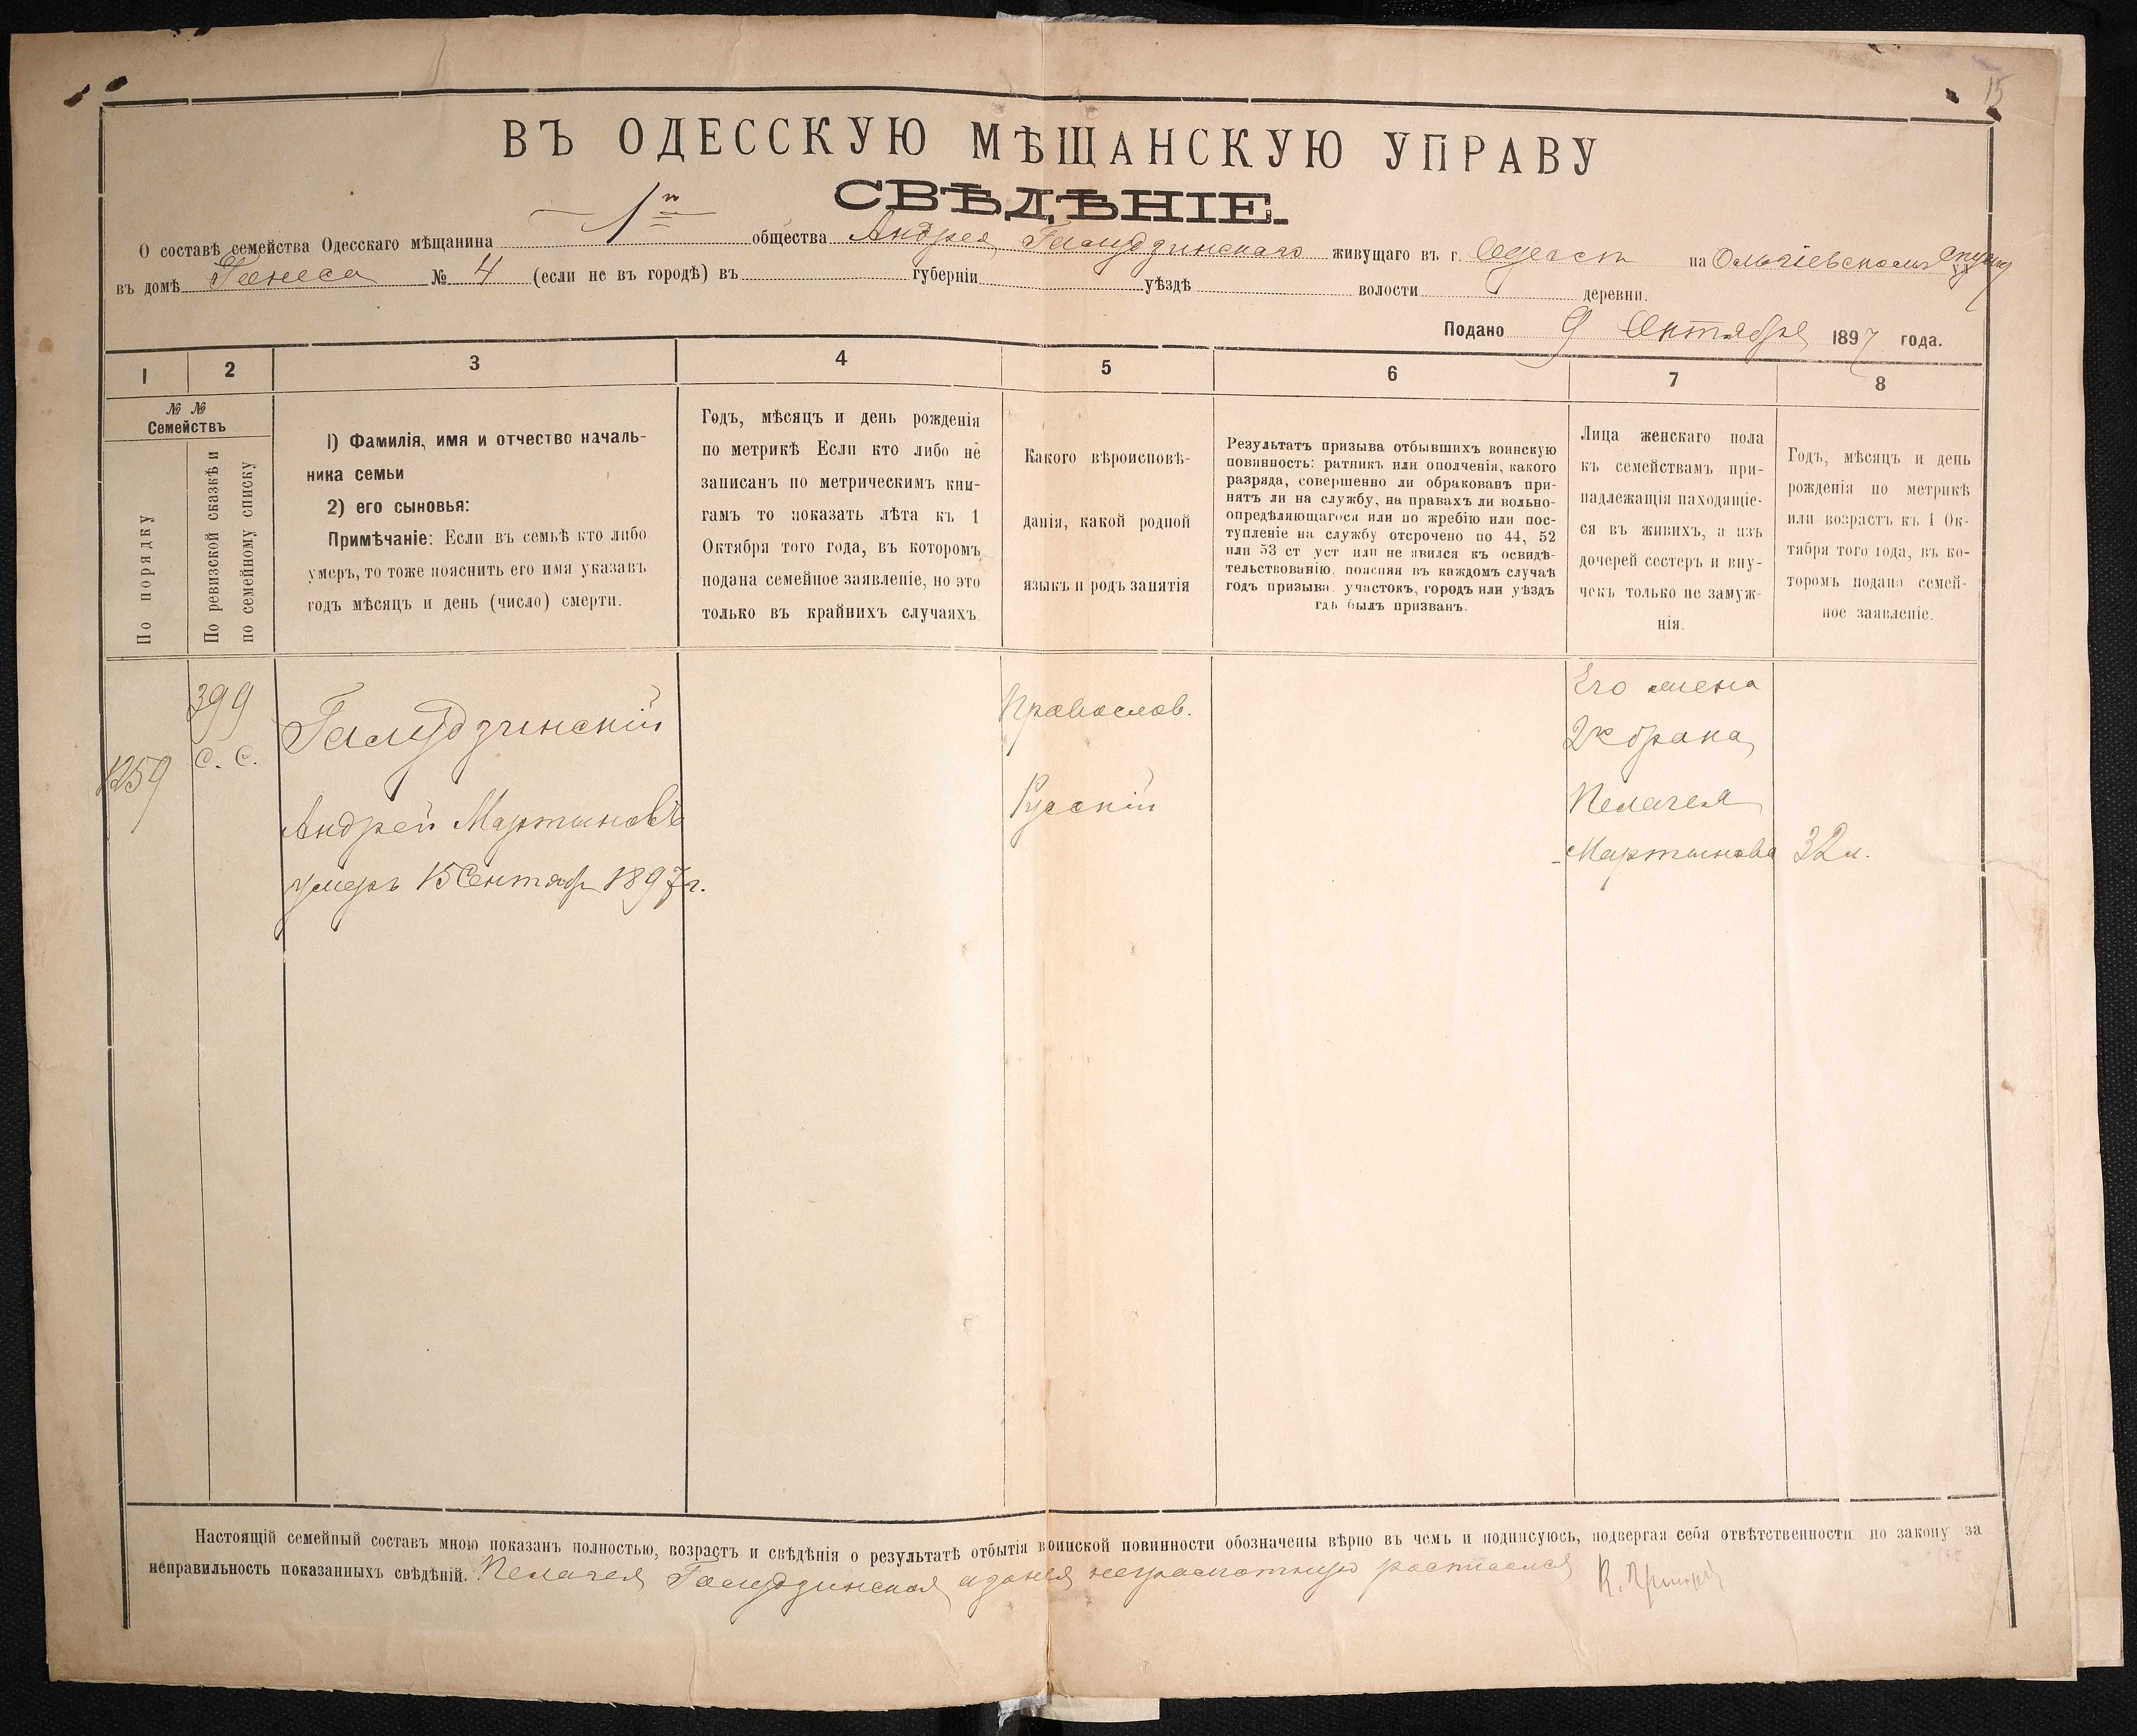 15
ВЪ ОДЕССКУЮ МѢЩАНСКУЮ УПРАВУ
СВѢДѢНІЕ.
О составѣ семейства Одесскаго мѣщанина 1го общества Андрея живущаго въ г. Одессѣ на Ольгіевскомъ спуску ул
въ домѣ № 4 (если не въ городѣ) въ губерніи уѣздѣ волости деревни.
Подано 9 Октября 1897 года.
1 2 3 4 5 6 7 8
№ №
Семействъ
По порядку
По ревизской сказкѣ и
по семейному списку
1) Фамилія, имя и отчество началь-
ника семьи
2) его сыновья:
Примѣчаніе: Если въ семьѣ кто либо
умеръ, то тоже пояснить его имя указавъ
годъ мѣсяцъ и день (число) смерти.
Годъ, мѣсяцъ и день рожденія
по метрикѣ Если кто либо не
записанъ по метрическимъ кни-
гамъ то показать лѣта къ 1
Октября того года, въ которомъ
подана семейное заявленіе, но это
только въ крайнихъ случаяхъ.
Какого вѣроисповѣ-
данія, какой родной
языкъ и родъ занятія
Результатъ призыва отбывшихъ воинскую
повинность: ратникъ или ополченія, какого
разряда, совершенно ли обракованъ при-
нятъ ли на службу, на правахъ ли вольно-
опредѣляющагося или по жребію или пос-
тупленіе на службу отсрочено по 44, 52
или 53 ст уст или не явился къ освидѣ-
тельствованію, поясняя въ каждомъ случаѣ
годъ призыва, участокъ, городъ или уѣздъ
гдѣ былъ призванъ.
Лица женскаго пола
къ семействамъ при-
надлежащія находящіе-
ся въ живихъ, а изъ
дочерей сестеръ и вну-
чекъ только не замуж-
нія.
Годъ, мѣсяцъ и день
рожденія по метрикѣ
или возрастъ къ 1 Ок-
тября того года, въ ко-
торомъ подано семей-
ное заявленіе.
1259
399
С. С.
Андрей Мартыновъ
умеръ 15 Сентября 1897 г.
Православ.
Русскій
Его жена
2го брака
Пелагея
Мартынова
32 л.
Настоящій семейный составъ мною показанъ полностью, возрастъ и свѣдѣнія о результатѣ отбытія воинской повинности обозначены вѣрно въ чемъ и подписуюсь, подвергая себя отвѣтственности по закону за
неправильность показанныхъ свѣдѣній. Пелагея